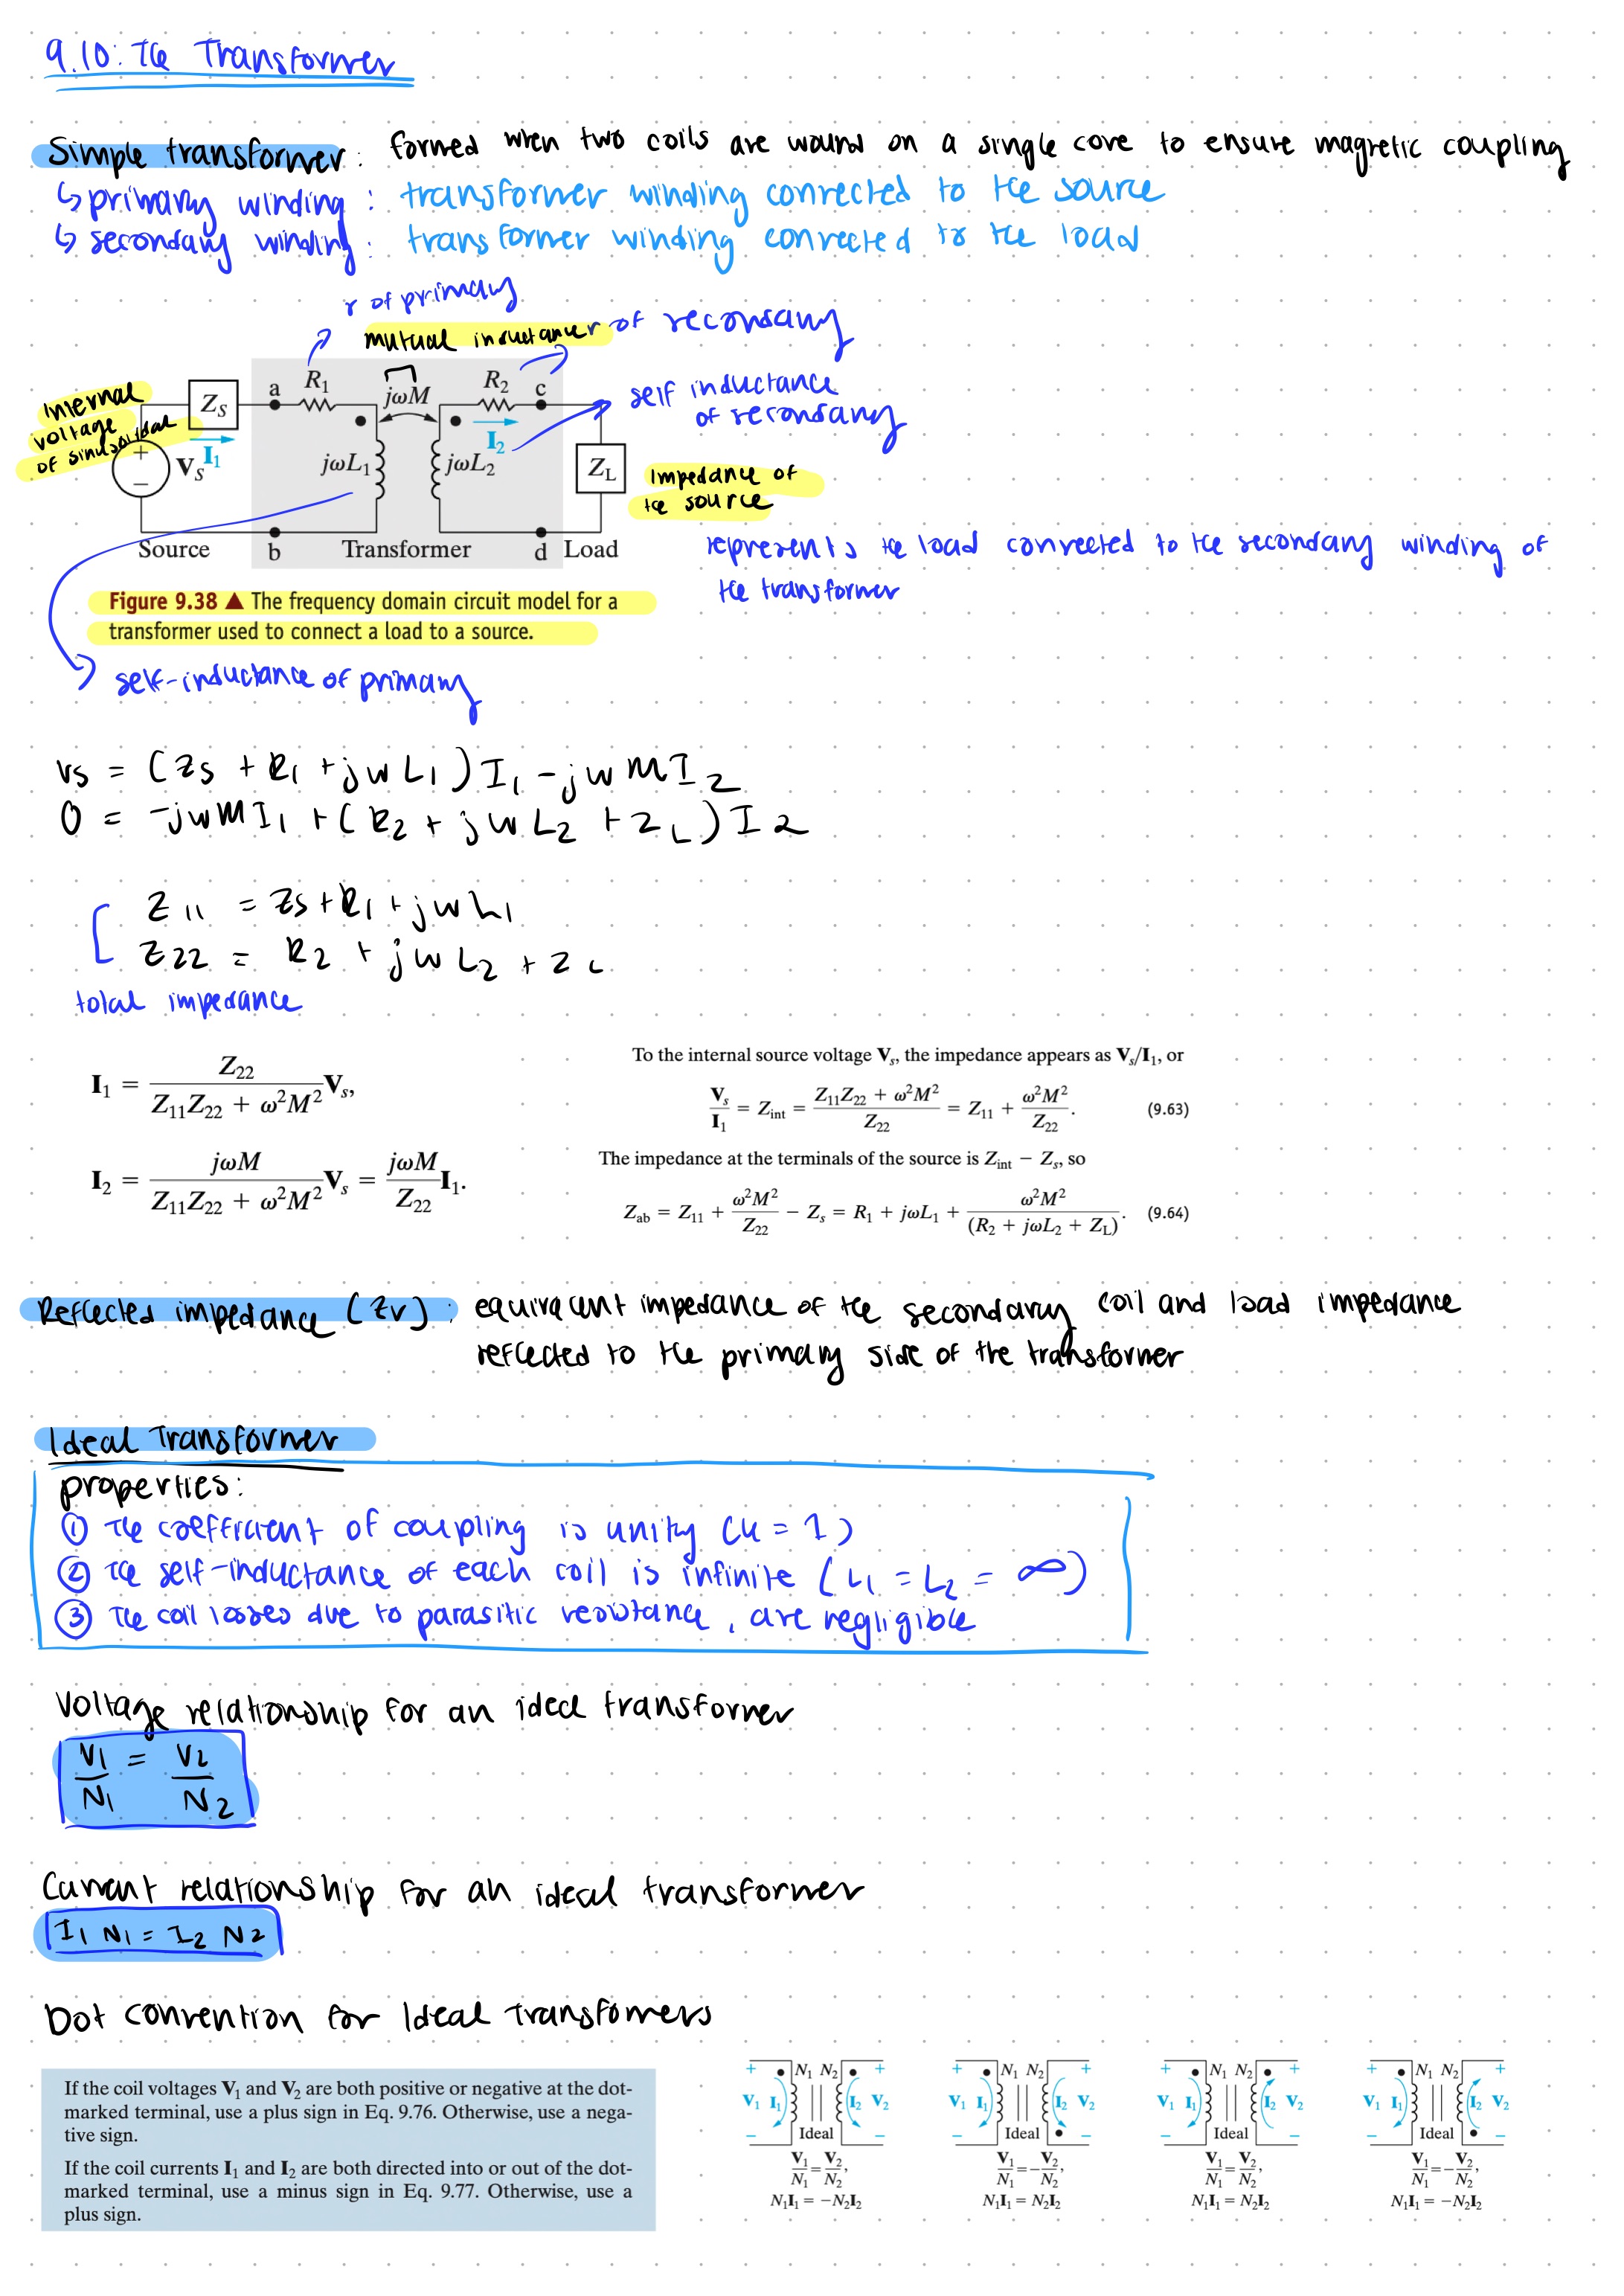 9.10: The Transformer
Simple transformer: formed when two coils are wound on a single core to ensure magnetic coupling
↳ primary winding: transformer winding connected to the source
↳ secondary winding: transformer winding connected to the load
r of primary
mutual inductance
r of secondary
internal voltage of sinusoidal
self inductance
of secondary
Z_S a R₁ jωM R₂ c
I₁ I₂
V_s jωL₁ jωL₂ Z_L
Source b Transformer d Load
Impedance of
the source
represents the load connected to the secondary winding of
the transformer
Figure 9.38 ▲ The frequency domain circuit model for a
transformer used to connect a load to a source.
self-inductance of primary
Vs = (Zs + R₁ + jωL₁) I₁ - jωM I₂
0 = -jωM I₁ + (R₂ + jωL₂ + Z_L) I₂
Z₁₁ = Zs + R₁ + jωL₁
Z₂₂ = R₂ + jωL₂ + Z_L
total impedance
I₁ = Z₂₂ / (Z₁₁Z₂₂ + ω²M²) V_s,
I₂ = jωM / (Z₁₁Z₂₂ + ω²M²) V_s = jωM / Z₂₂ I₁.
To the internal source voltage V_s, the impedance appears as V_s/I₁, or
V_s / I₁ = Z_int = (Z₁₁Z₂₂ + ω²M²) / Z₂₂ = Z₁₁ + ω²M² / Z₂₂. (9.63)
The impedance at the terminals of the source is Z_int − Z_s, so
Z_ab = Z₁₁ + ω²M² / Z₂₂ − Z_s = R₁ + jωL₁ + ω²M² / (R₂ + jωL₂ + Z_L). (9.64)
Reflected impedance (Zr): equivalent impedance of the secondary coil and load impedance
reflected to the primary side of the transformer
Ideal Transformer
properties:
① The coefficient of coupling is unity (k = 1)
② The self-inductance of each coil is infinite (L₁ = L₂ = ∞)
③ The coil losses due to parasitic resistance, are negligible
Voltage relationship for an ideal transformer
V₁ / N₁ = V₂ / N₂
Current relationship for an ideal transformer
I₁ N₁ = I₂ N₂
Dot convention for Ideal Transfomers
If the coil voltages V₁ and V₂ are both positive or negative at the dot-
marked terminal, use a plus sign in Eq. 9.76. Otherwise, use a nega-
tive sign.
If the coil currents I₁ and I₂ are both directed into or out of the dot-
marked terminal, use a minus sign in Eq. 9.77. Otherwise, use a
plus sign.
+ N₁ N₂ +
V₁ I₁ I₂ V₂
− Ideal −
V₁/N₁ = V₂/N₂,
N₁I₁ = −N₂I₂
+ N₁ N₂ +
V₁ I₁ I₂ V₂
− Ideal −
V₁/N₁ = −V₂/N₂,
N₁I₁ = N₂I₂
+ N₁ N₂ +
V₁ I₁ I₂ V₂
− Ideal −
V₁/N₁ = V₂/N₂,
N₁I₁ = N₂I₂
+ N₁ N₂ +
V₁ I₁ I₂ V₂
− Ideal −
V₁/N₁ = −V₂/N₂,
N₁I₁ = −N₂I₂